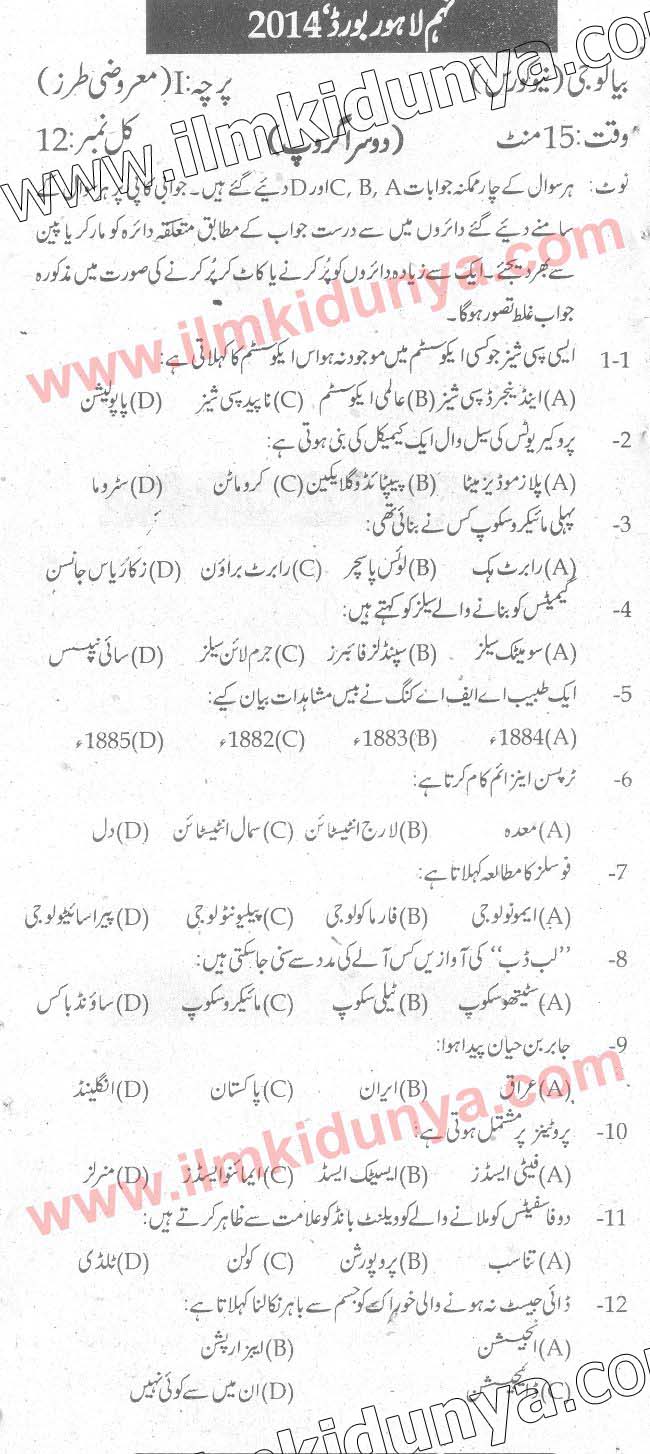 نہم لاہور بورڈ، 2014
بیالوجی (نیوکورس) پرچہ: I (معروضی طرز)
وقت: 15 منٹ (دوسرا گروپ) کل نمبر: 12
نوٹ: ہر سوال کے چار ممکنہ جوابات C, B, A اور D دیئے گئے ہیں۔ جوابی کاپی پر ہر سوال کے
سامنے دیئے گئے دائروں میں سے درست جواب کے مطابق متعلقہ دائرہ کو مارکر یا پین
سے بھر دیجئے۔ ایک سے زیادہ دائروں کو پُر کرنے یا کاٹ کر پُر کرنے کی صورت میں مذکورہ
جواب غلط تصور ہوگا۔
1-1 ایسی سپی شیز جو کسی ایکوسسٹم میں موجود نہ ہو اس ایکوسسٹم کا کہلاتی ہے:
(A) اینڈینجرڈ سپی شیز (B) عالمی ایکوسسٹم (C) ناپید سپی شیز (D) پاپولیشن
2- پروکیریوٹس کی سیل وال ایک کیمیکل کی بنی ہوتی ہے:
(A) پلازموڈیزمیٹا (B) پیپٹائڈوگلائیکین (C) کروماٹن (D) سٹروما
3- پہلی مائیکروسکوپ کس نے بنائی تھی:
(A) رابرٹ ہک (B) لوئس پاسچر (C) رابرٹ براؤن (D) زکاریاس جانسن
4- گیمیٹس کو بنانے والے سیلز کو کہتے ہیں:
(A) سومیٹک سیلز (B) سپنڈلز فائبرز (C) جرم لائن سیلز (D) سائی نیپسس
5- ایک طبیب اے ایف اے کنگ نے بیس مشاہدات بیان کیے:
(A) 1884ء (B) 1883ء (C) 1882ء (D) 1885ء
6- ٹرپسن اینزائم کام کرتا ہے:
(A) معدہ (B) لارج انٹیسٹائن (C) سمال انٹیسٹائن (D) دل
7- فوسلز کا مطالعہ کہلاتا ہے:
(A) ایمونولوجی (B) فارماکولوجی (C) پیلیونٹولوجی (D) پیراسائیٹولوجی
8- ’’لب ڈب‘‘ کی آوازیں کس آلے کی مدد سے سنی جا سکتی ہیں:
(A) سٹیتھوسکوپ (B) ٹیلی سکوپ (C) مائیکروسکوپ (D) ساؤنڈ باکس
9- جابر بن حیان پیدا ہوا:
(A) عراق (B) ایران (C) پاکستان (D) انگلینڈ
10- پروٹینز پر مشتمل ہوتی ہے:
(A) فیٹی ایسڈز (B) ایسیٹک ایسڈ (C) ایمائنو ایسڈز (D) منرلز
11- دو فاسفیٹس کو ملانے والے کوویلنٹ بانڈ کو علامت سے ظاہر کرتے ہیں:
(A) تناسب (B) پروپورشن (C) کولن (D) ٹلڈی
12- ڈائی جیسٹ نہ ہونے والی خوراک کو جسم سے باہر نکالنا کہلاتا ہے:
(A) انجیشن (B) ایبزارپشن
(C) ڈائیجیشن (D) ان میں سے کوئی نہیں
www.ilmkidunya.com
www.ilmkidunya.com
www.ilmkidunya.com
www.ilmkidunya.com